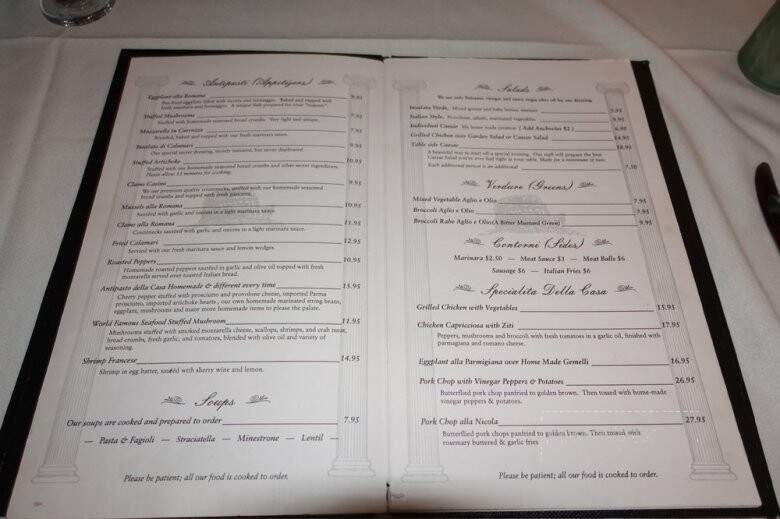 Antipasti (Appetizers)
Eggplant alla Romana 9.95
Pan fried eggplant filled with ricotta and formaggio. Baked and topped with
fresh marinara and formaggio. A unique dish prepared for your "tasters".
Stuffed Mushrooms 7.95
Stuffed with homemade seasoned bread crumbs. Very light and unique.
Mozzarella in Carrozza 7.95
Breaded, baked and topped with our fresh marinara sauce.
Insalata di Calamari 9.95
Our special secret dressing, mostly imitated, but never duplicated.
Stuffed Artichoke 10.95
Stuffed with our homemade seasoned bread crumbs and other secret ingredients.
Please allow 15 minutes for cooking.
Clams Casino 9.95
We use premium quality countnecks, stuffed with our homemade seasoned
bread crumbs and topped with fresh pancetta.
Mussels alla Romana 10.95
Sautéed with garlic and onions in a light marinara sauce.
Clams alla Romana 11.95
Countnecks sautéed with garlic and onions in a light marinara sauce.
Fried Calamari 12.95
Served with our fresh marinara sauce and lemon wedges.
Roasted Peppers 10.95
Homemade roasted peppers sautéed in garlic and olive oil topped with fresh
mozzarella served over toasted Italian bread.
Antipasto della Casa Homemade & different every time 15.95
Cherry pepper stuffed with prosciutto and provolone cheese, imported Parma
prosciutto, imported artichoke hearts , our own homemade marinated string beans,
eggplant, mushrooms and many more homemade items to please the palate.
World Famous Seafood Stuffed Mushroom 11.95
Mushrooms stuffed with smoked mozzarella cheese, scallops, shrimps, and crab meat,
bread crumbs, fresh garlic, and tomatoes, blended with olive oil and variety of
seasoning.
Shrimp Francese 14.95
Shrimp in egg batter, sautéed with sherry wine and lemon.
Soups
Our soups are cooked and prepared to order 7.95
— Pasta & Fagioli — Straciatella — Minestrone — Lentil —
Please be patient; all our food is cooked to order.
Salads
We use only Balsamic vinegar and extra virgin olive oil for our dressing
Insalata Verde, Mixed greens and baby lettuce 5.95
Italian Style, 9.95
Individual Caesar We home made croutons ( Add Anchovies $2 ) 6.95
Grilled Chicken over Garden Salad or Caesar Salad 14.95
Table side Caesar 18.95
A beautiful way to start off a special evening. Our staff will prepare the best
Caesar Salad you've ever had right at your table. Made for a minimum of two.
Each additional person is an additional 7.50
Verdure (Greens)
Mixed Vegetable Aglio e Olio 7.95
Broccoli Aglio e Olio 7.95
Broccoli Rabe Aglio e Olio(A Bitter Mustard Green) 9.95
Contorni (Sides)
Marinara $2.50 — Meat Sauce $3 — Meat Balls $6
Sausage $6 — Italian Fries $6
Specialita Della Casa
Grilled Chicken with Vegetables 15.95
Chicken Capricciosa with Ziti 17.95
Peppers, mushrooms and broccoli with fresh tomatoes in a garlic oil, finished with
parmagiana and romano cheese.
Eggplant alla Parmigiana over Home Made Gemelli 16.95
Pork Chop with Vinegar Peppers & Potatoes 26.95
Butterflied pork chop panfried to golden brown. Then tossed with home-made
vinegar peppers & potatoes.
Pork Chop alla Nicola 27.95
Butterflied pork chops panfried to golden brown. Then tossed with
rosemary buttered & garlic fries
Please be patient; all our food is cooked to order.